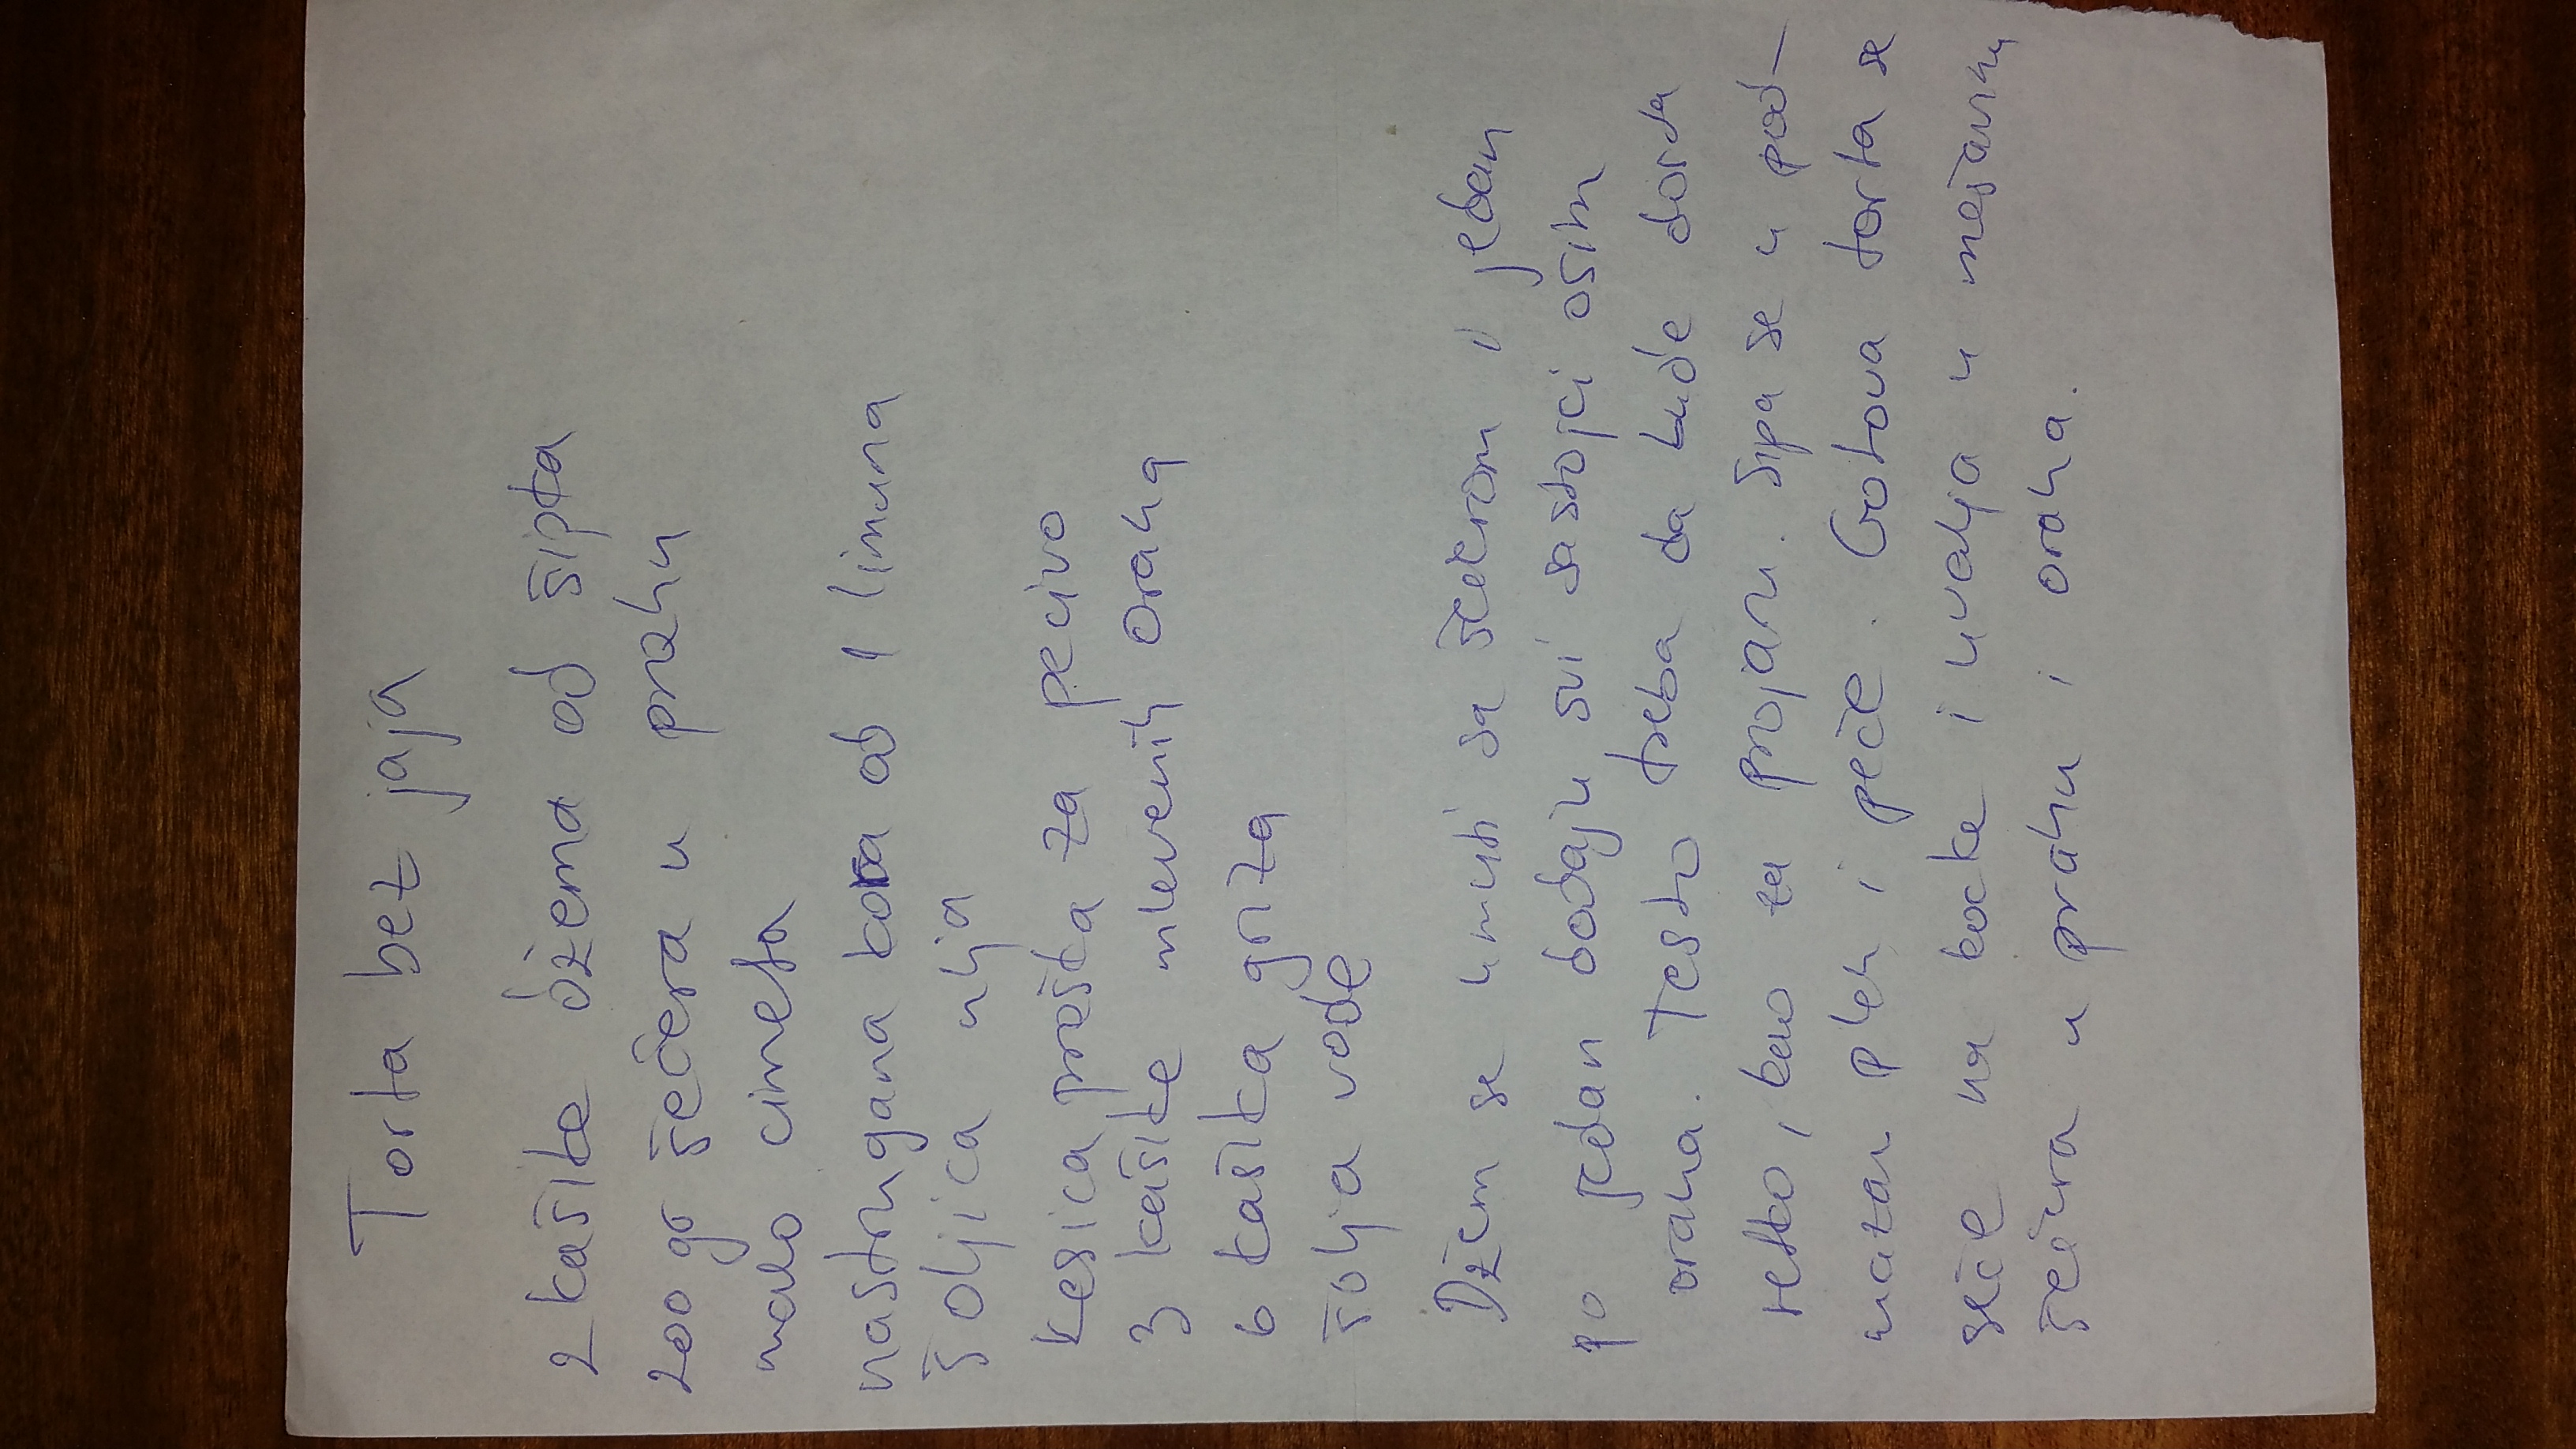 Torta bez jaja
2 kašike džema od šipka
200 gr šećera u prahu
malo cimeta
nastrugana kora od 1 limuna
šoljica ulja
kesica praška za pecivo
3 kašike mlevenih oraha
6 kašika griza
šolja vode
Džem se umuti sa šećerom i jedan
po jedan dodaju svi sastojci osim
oraha. Testo treba da bude dosta
retko, kao za projaru. Sipa se u pod-
mazan pleh i peče. Gotova torta se
seče na kocke i uvalja u mešavinu
šećera u prahu i oraha.